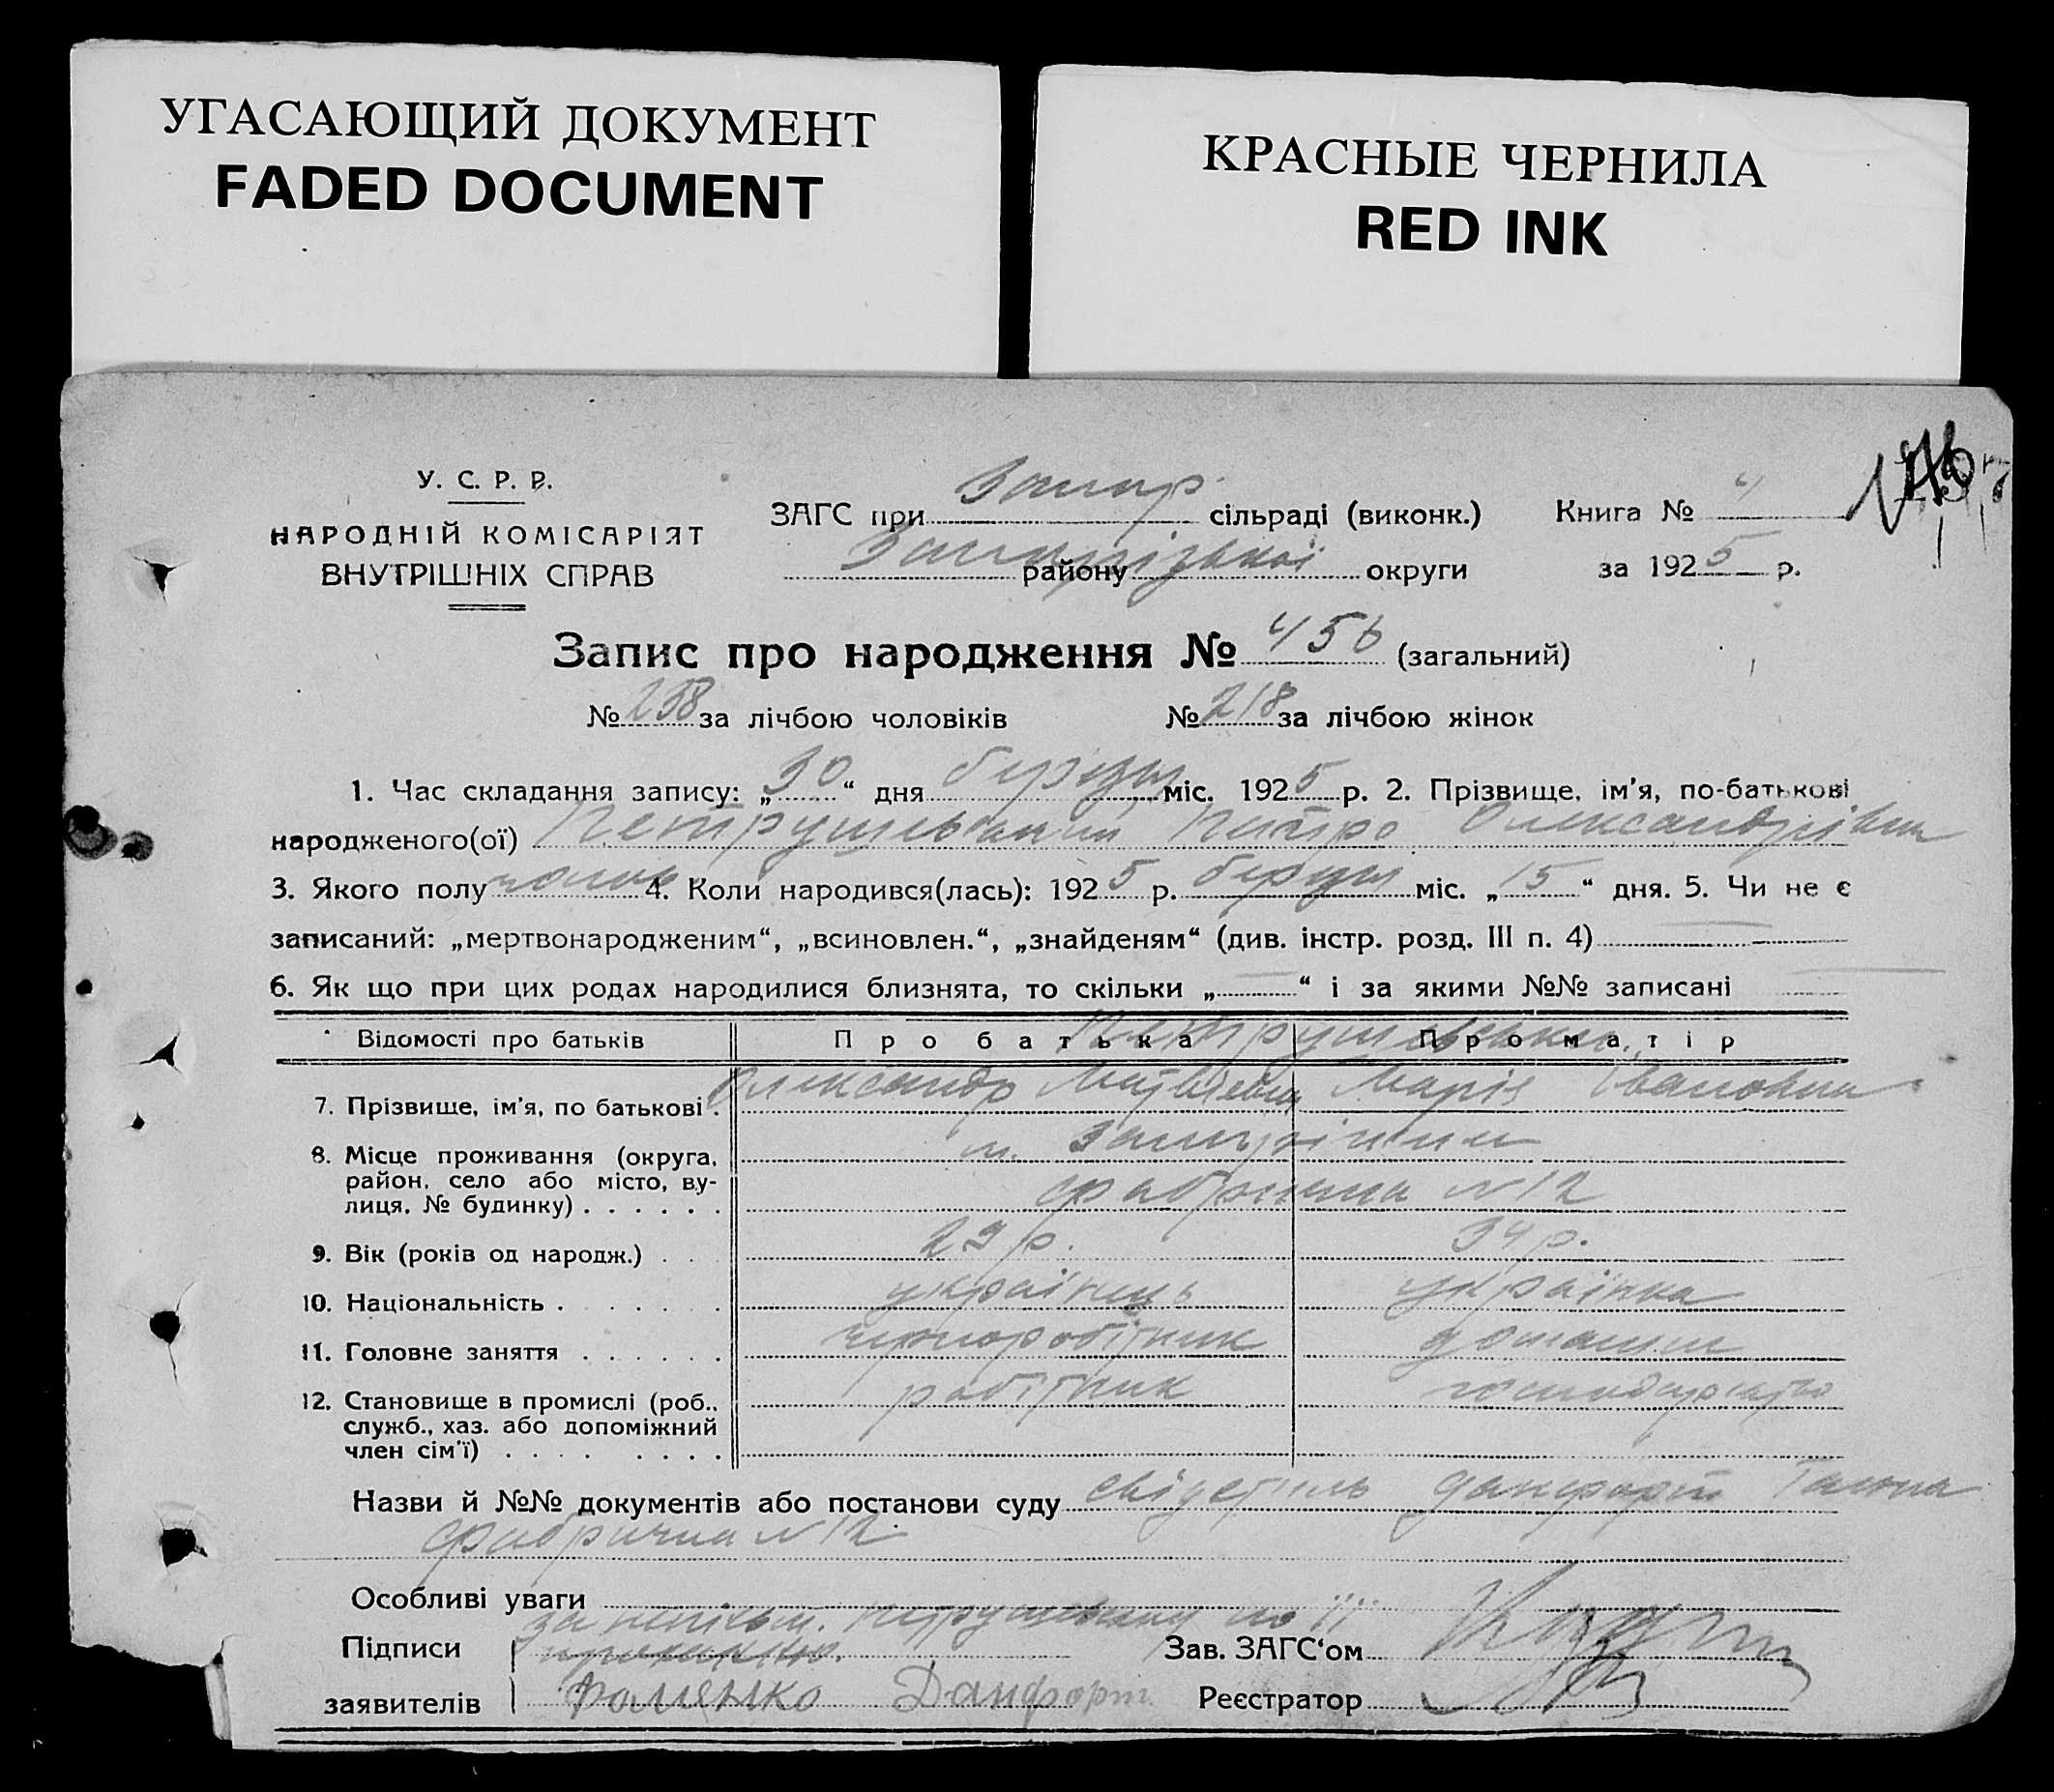 УГАСАЮЩИЙ ДОКУМЕНТ
FADED DOCUMENT
КРАСНЫЕ ЧЕРНИЛА
RED INK
У. С. Р. Р.
НАРОДНІЙ КОМІСАРІЯТ
ВНУТРІШНІХ СПРАВ
ЗАГС при Запор. сільраді (виконк.) Книга № 4
району Запорізької округи за 1925 р.
Запис про народження № 456 (загальний)
№ 238 за лічбою чоловіків № 218 за лічбою жінок
1. Час складання запису: „30“ дня березня міс. 1925 р. 2. Прізвище, ім'я, по-батькові
народженого(ої) Петрушевський Петро Олександрівич
3. Якого полу чолов. 4. Коли народився(лась): 1925 р. березня міс. „15“ дня. 5. Чи не є
записаний: „мертвонародженим“, „всиновлен.“, „знайденям“ (див. інстр. розд. III п. 4)
6. Як що при цих родах народилися близнята, то скільки „ “ і за якими №№ записані
Відомості про батьків Про батька Про матір
Петрушевськи
7. Прізвище, ім'я, по батькові. Олександр Матвієвич Марія Івановна
8. Місце проживання (округа, район, село або місто, вулиця, № будинку) м. Запоріжжя
фабрична № 12
9. Вік (років од народж.) 29 р. 34 р.
10. Національність українець українка
11. Головне заняття чорноробітник домашн
12. Становище в промислі (роб., служб., хаз. або допоміжний член сім'ї) робітник господарство
Назви й №№ документів або постанови суду свідетель Данфорт Ганна
фабрична № 12.
Особливі уваги
за неписьм. Петрушевську по її
Підписи проханню. Зав. ЗАГС'ом
заявителів Фоменко Данфорт Реєстратор